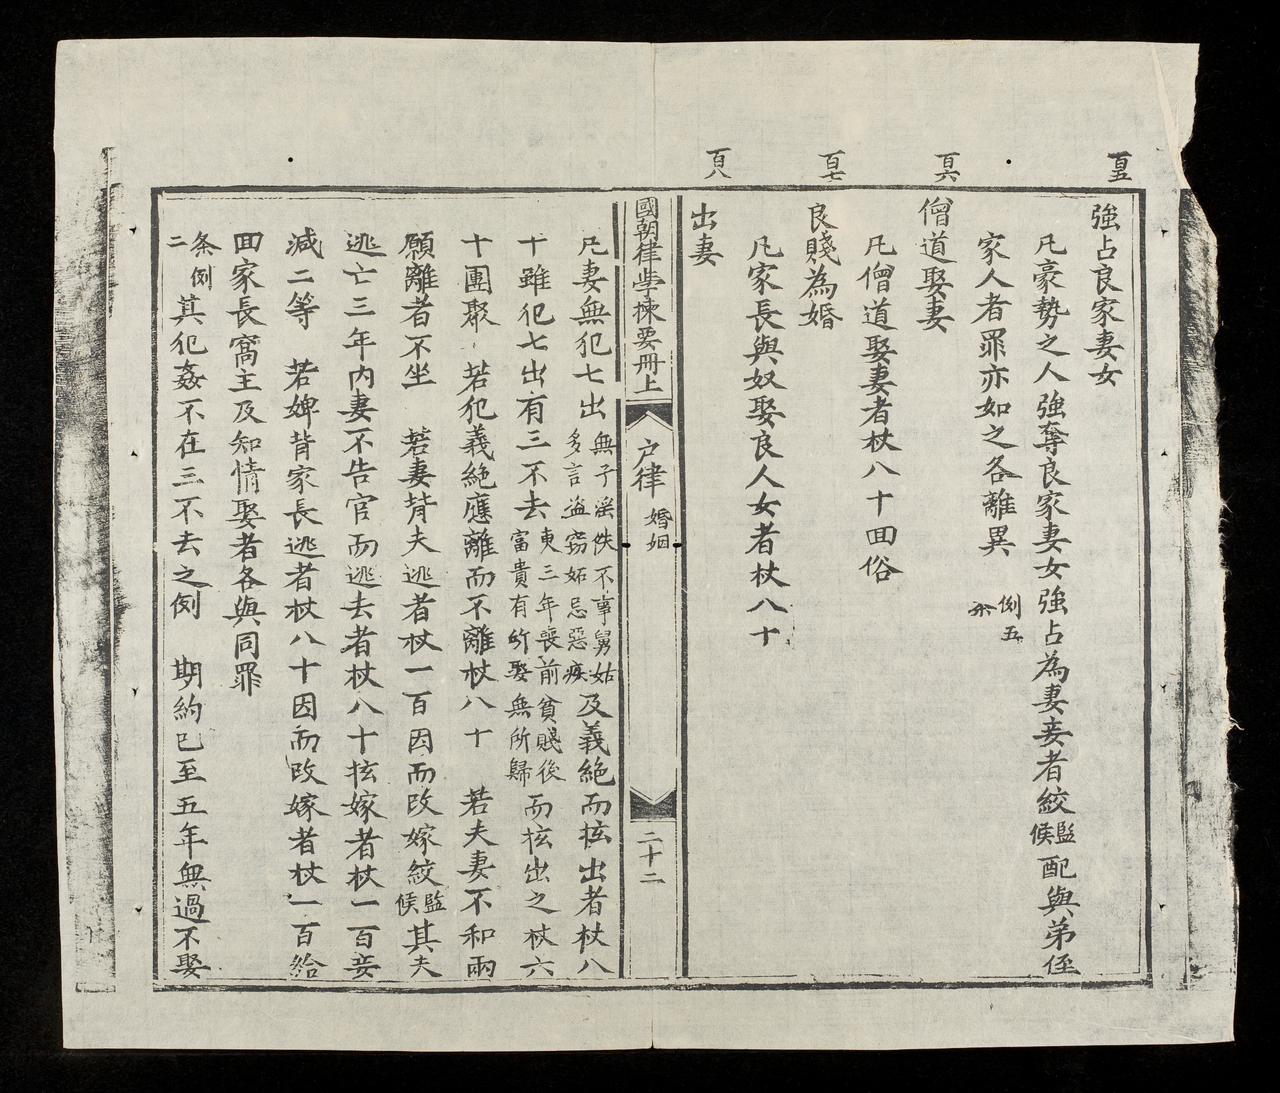 百五
強占良家妻女
凡豪勢之人強奪良家妻女強占為妻妾者絞監候配與弟侄
家人者罪亦如之各離異 例五
百六
僧道娶妻
凡僧道娶妻者杖八十回俗
百七
良賤為婚
凡家長與奴娶良人女者杖八十
百八
出妻
國朝律學揀要冊上 户律 婚姻 二十二
凡妻無犯七出無子淫佚不事舅姑多言盗竊妬忌惡疾及義絕而抂出者杖八
十雖犯七出有三不去更三年喪前貧賤後富貴有所娶無所歸而抂出之杖六
十團聚 若犯義絕應離而不離杖八十 若夫妻不和兩
願離者不坐 若妻背夫逃者杖一百因而改嫁絞監候其夫
逃亡三年内妻不告官而逃去者杖八十抂嫁者杖一百妾
減二等 若婢背家長逃者杖八十因而改嫁者杖一百給
回家長窩主及知情娶者各與同罪
条例二 其犯姦不在三不去之例 期約已至五年無過不娶